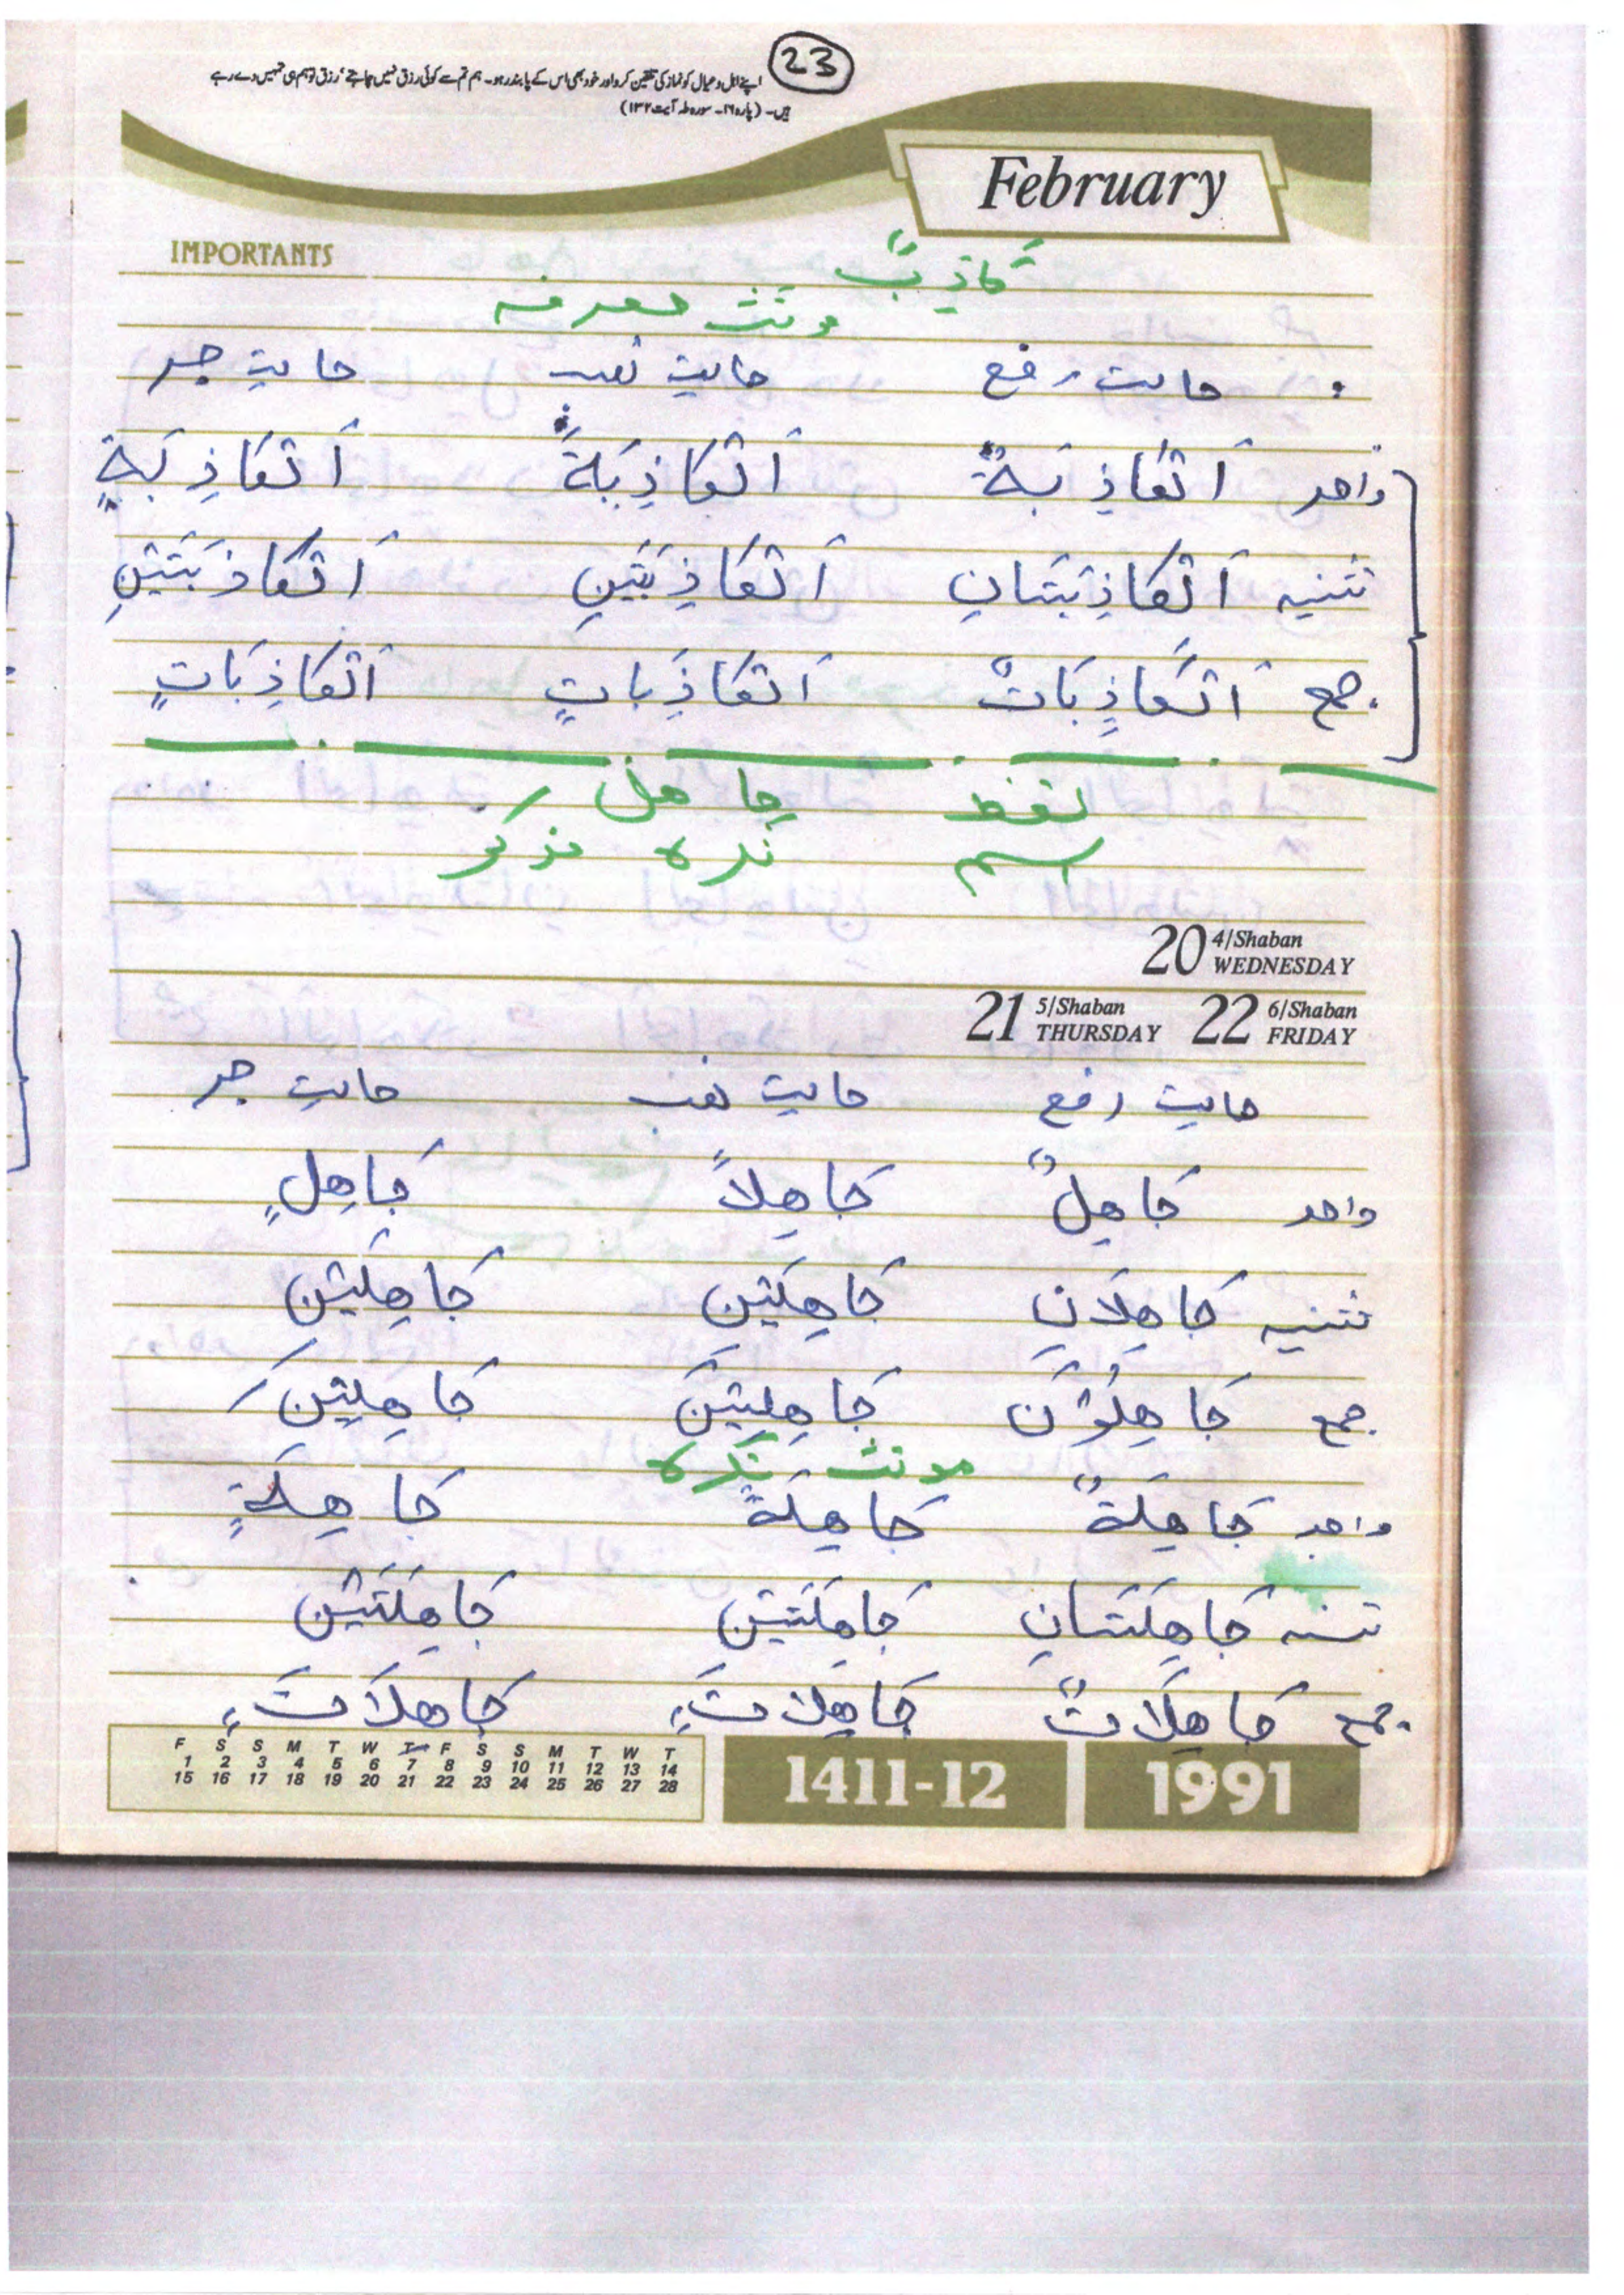 23
اپنے اہل و عیال کو نماز کی تلقین کرو اور خود بھی اس کے پابند رہو۔ ہم تم سے کوئی رزق نہیں چاہتے، رزق تو ہم ہی تمہیں دے رہے
ہیں۔ (پارہ ۱۶۔ سورہ طہ آیت ۱۳۲)
February
IMPORTANTS
کَاذِبٌ
مونث معرفہ
حالت رفع حالت نصب حالت جر
واحد اَلکَاذِبَةٌ اَلکَاذِبَةً اَلکَاذِبَةٍ
تثنیہ اَلکَاذِبَتَانِ اَلکَاذِبَتَینِ اَلکَاذِبَتَینِ
جمع اَلکَاذِبَاتٌ اَلکَاذِبَاتٍ اَلکَاذِبَاتٍ
لفظ جاھل
اسم نکرہ مذکر
20 4/Shaban WEDNESDAY
21 5/Shaban THURSDAY 22 6/Shaban FRIDAY
حالت رفع حالت نصب حالت جر
واحد جَاھِلٌ جَاھِلاً جَاھِلٍ
تثنیہ جَاھِلَانِ جَاھِلَینِ جَاھِلَینِ
جمع جَاھِلُوْنَ جَاھِلِینَ جَاھِلِینَ
مونث نکرہ
واحد جَاھِلَةٌ جَاھِلَةً جَاھِلَةٍ
تثنیہ جَاھِلَتَانِ جَاھِلَتَینِ جَاھِلَتَینِ
جمع جَاھِلَاتٌ جَاھِلَاتٍ جَاھِلَاتٍ
F S S M T W T F S S M T W T
1 2 3 4 5 6 7 8 9 10 11 12 13 14
15 16 17 18 19 20 21 22 23 24 25 26 27 28
1411-12 1991